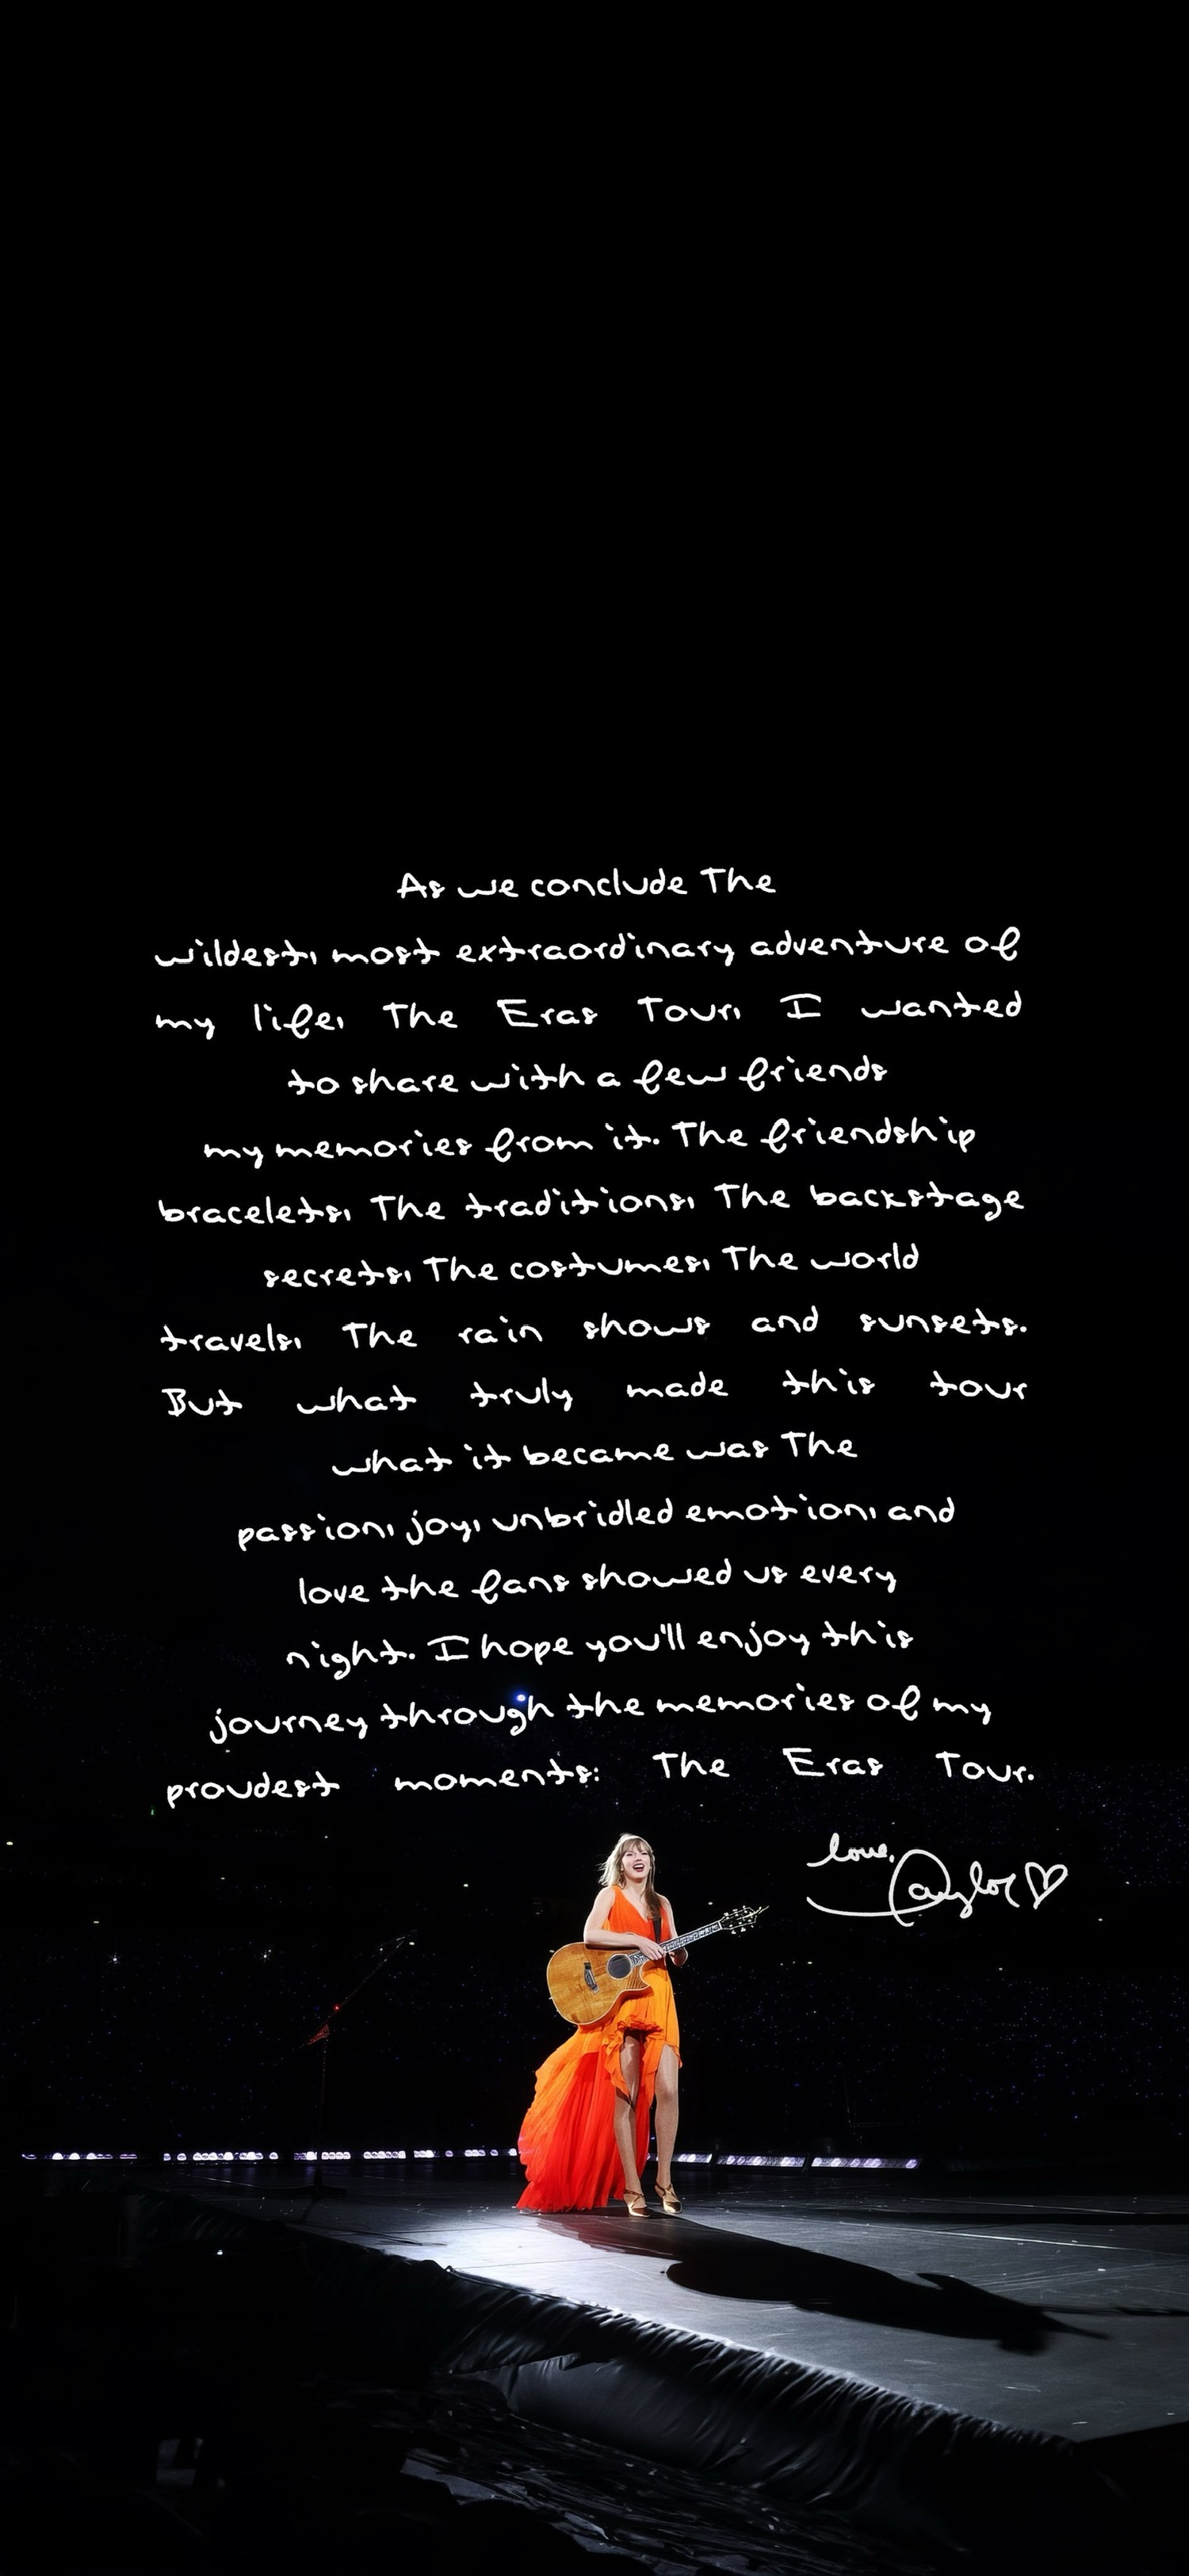 As we conclude The
wildest, most extraordinary adventure of
my life, The Eras Tour, I wanted
to share with a few friends
my memories from it. The friendship
bracelets, The traditions, The backstage
secrets, The costumes, The world
travels, The rain shows and sunsets.
But what truly made this tour
what it became was The
passion, joy, unbridled emotion, and
love the fans showed us every
night. I hope you'll enjoy this
journey through the memories of my
proudest moments: The Eras Tour.
love,
Taylor♡